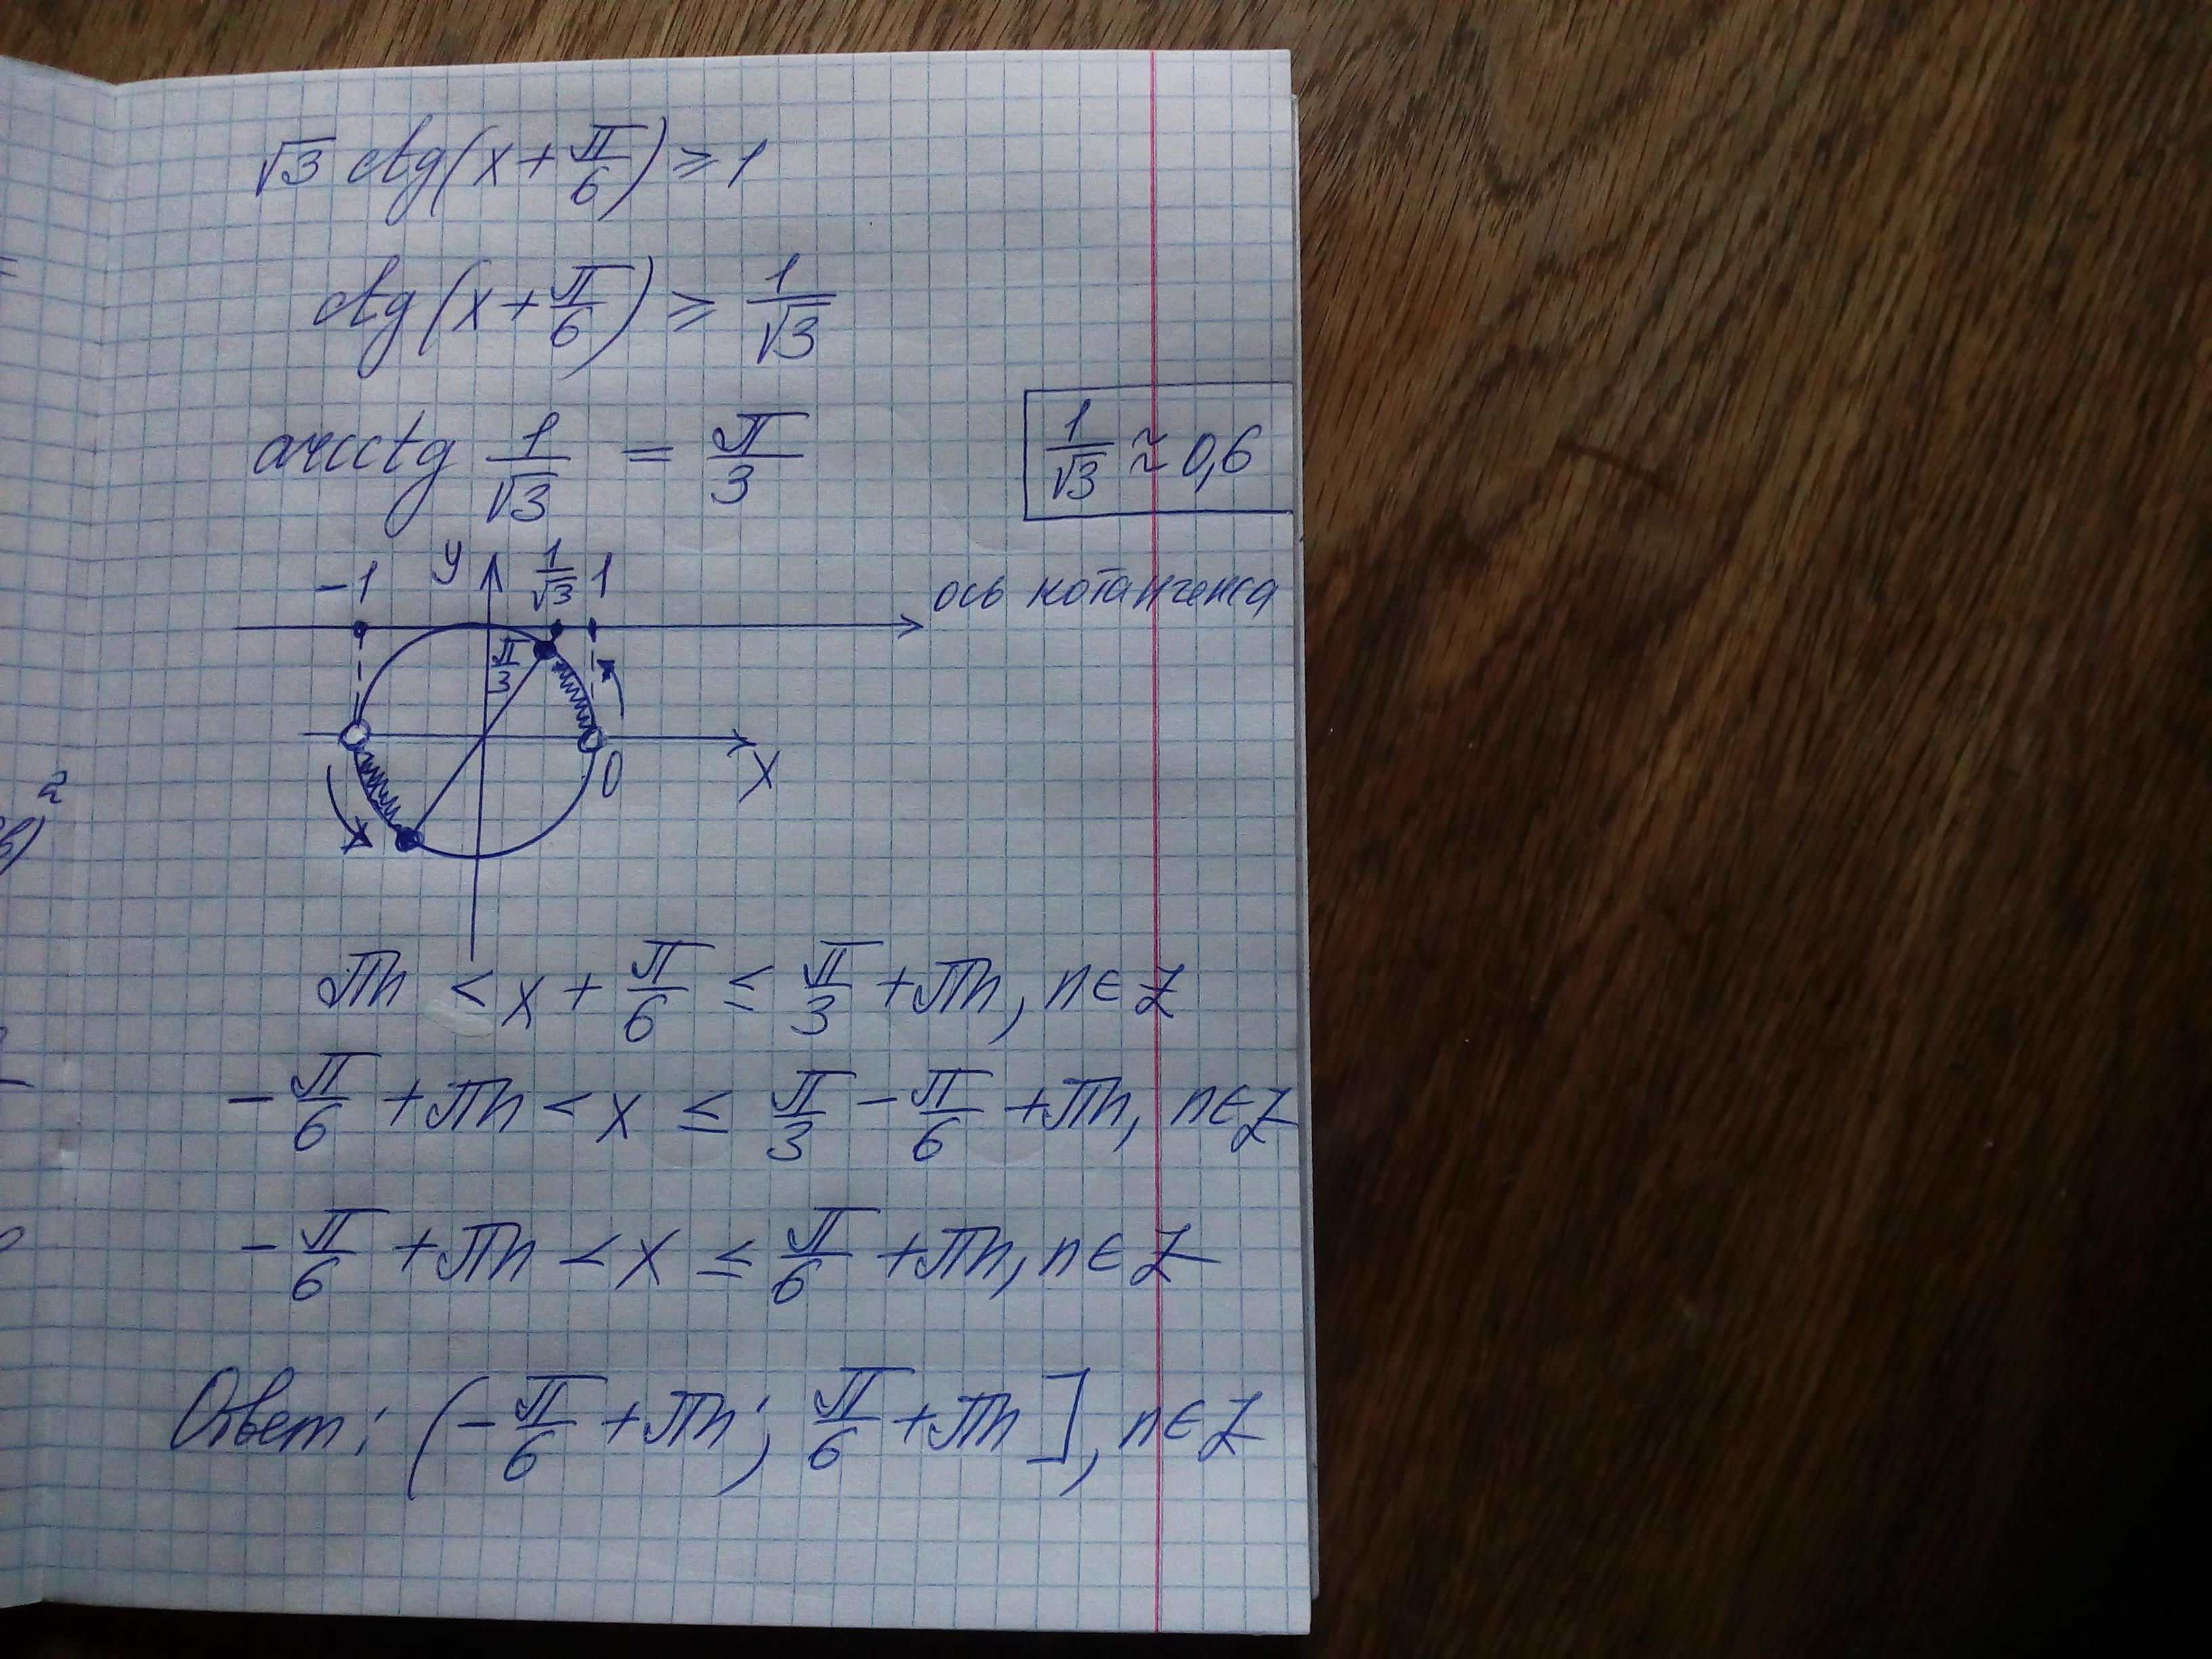 √3 ctg(x + π/6) ≥ 1
ctg(x + π/6) ≥ 1/√3
arcctg 1/√3 = π/3
1/√3 ≈ 0,6
y
-1
1/√3
1
ось котангенса
π/3
0
x
πn < x + π/6 ≤ π/3 + πn, n ∈ Z
-π/6 + πn < x ≤ π/3 - π/6 + πn, n ∈ Z
-π/6 + πn < x ≤ π/6 + πn, n ∈ Z
Ответ: (-π/6 + πn; π/6 + πn], n ∈ Z